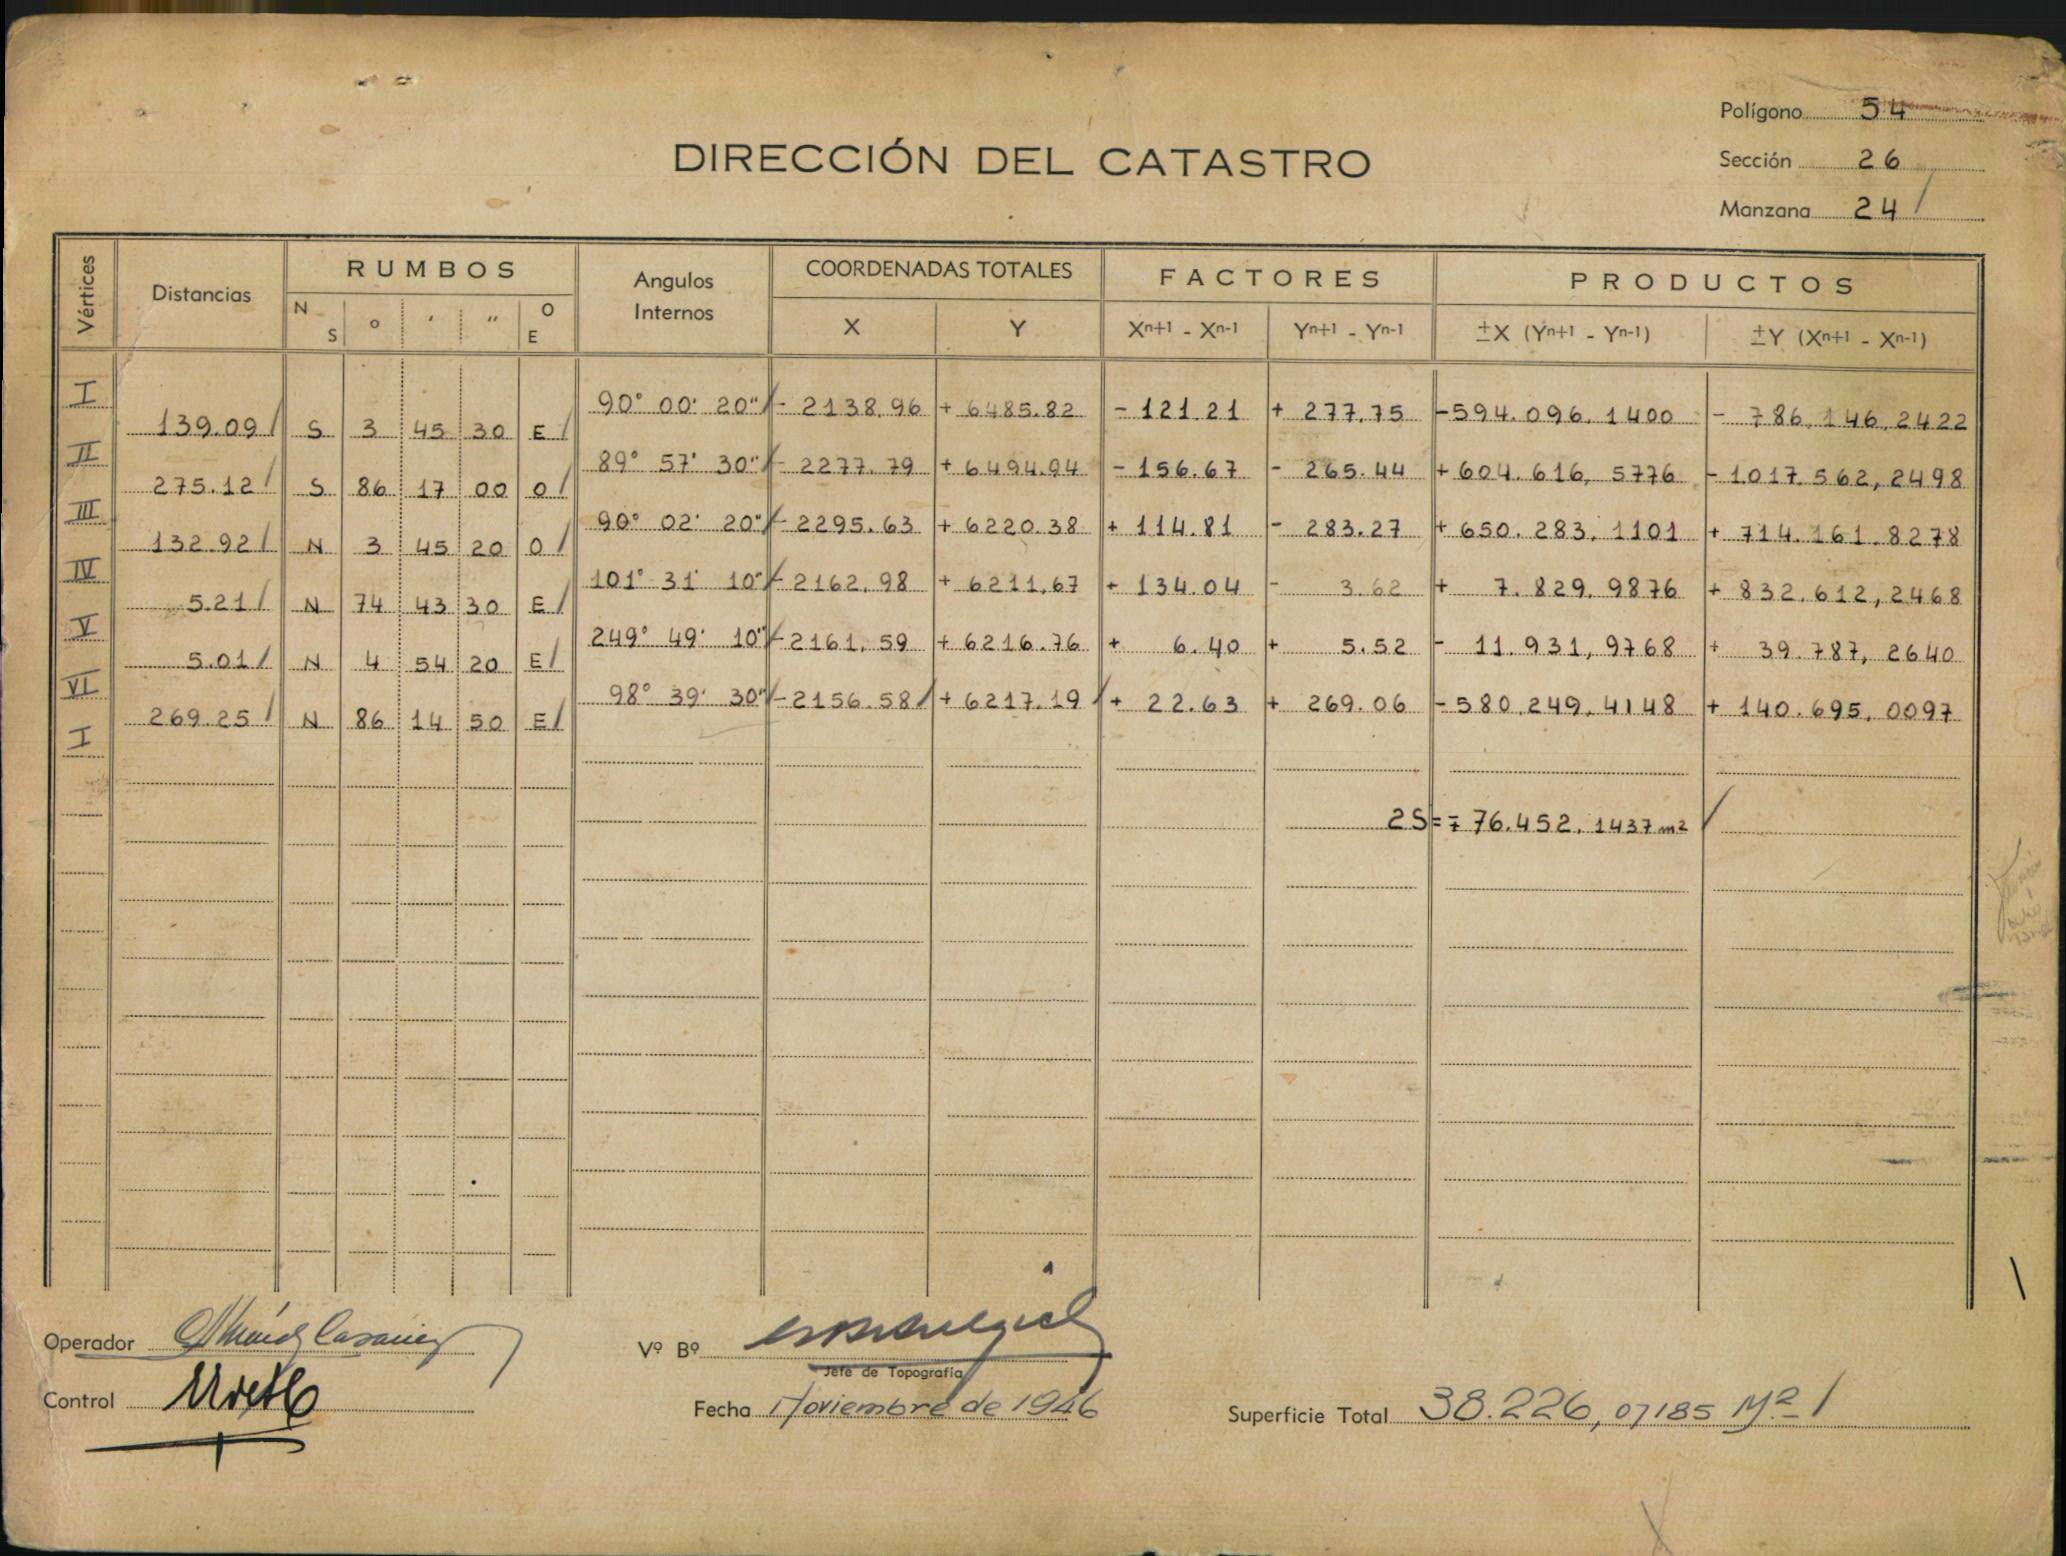 Polígono 54
DIRECCIÓN DEL CATASTRO
Sección 26
Manzana 24 /
Vértices Distancias RUMBOS Angulos Internos COORDENADAS TOTALES FACTORES PRODUCTOS
N S ° ′ ″ O E X Y Xn+1 - Xn-1 Yn+1 - Yn-1 ±X (Yn+1 - Yn-1) ±Y (Xn+1 - Xn-1)
I 90° 00' 20" / - 2138.96 + 6485.82 - 121.21 + 277.75 - 594.096,1400 - 786.146,2422
139.09 / S 3 45 30 E /
II 89° 57' 30" / - 2277.79 + 6494.94 - 156.67 - 265.44 + 604.616,5776 - 1017.562,2498
275.12 / S 86 17 00 O /
III 90° 02' 20" / - 2295.63 + 6220.38 + 114.81 - 283.27 + 650.283,1101 + 714.161.8278
132.92 / N 3 45 20 O /
IV 101° 31' 10" / - 2162,98 + 6211,67 + 134.04 - 3.62 + 7.829,9876 + 832.612,2468
5.21 / N 74 43 30 E /
V 249° 49' 10" / - 2161,59 + 6216.76 + 6.40 + 5.52 - 11.931,9768 + 39.787,2640
5.01 / N 4 54 20 E /
VI 98° 39' 30" / - 2156.58 / + 6217.19 / + 22.63 + 269.06 - 580.249,4148 + 140.695,0097
269.25 / N 86 14 50 E /
I
2S = ∓ 76.452,1437 m2 /
Operador
Vº Bº
Jefe de Topografía
Control
Fecha Noviembre de 1946
Superficie Total 38.226,07185 M2 /